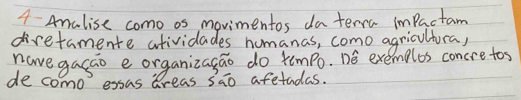 4- Analise como os movimentos da terra impactam
diretamente atividades humanas, como agricultura,
navegação e organização do tempo. Dê exemplos concretos
de como essas áreas são afetadas.